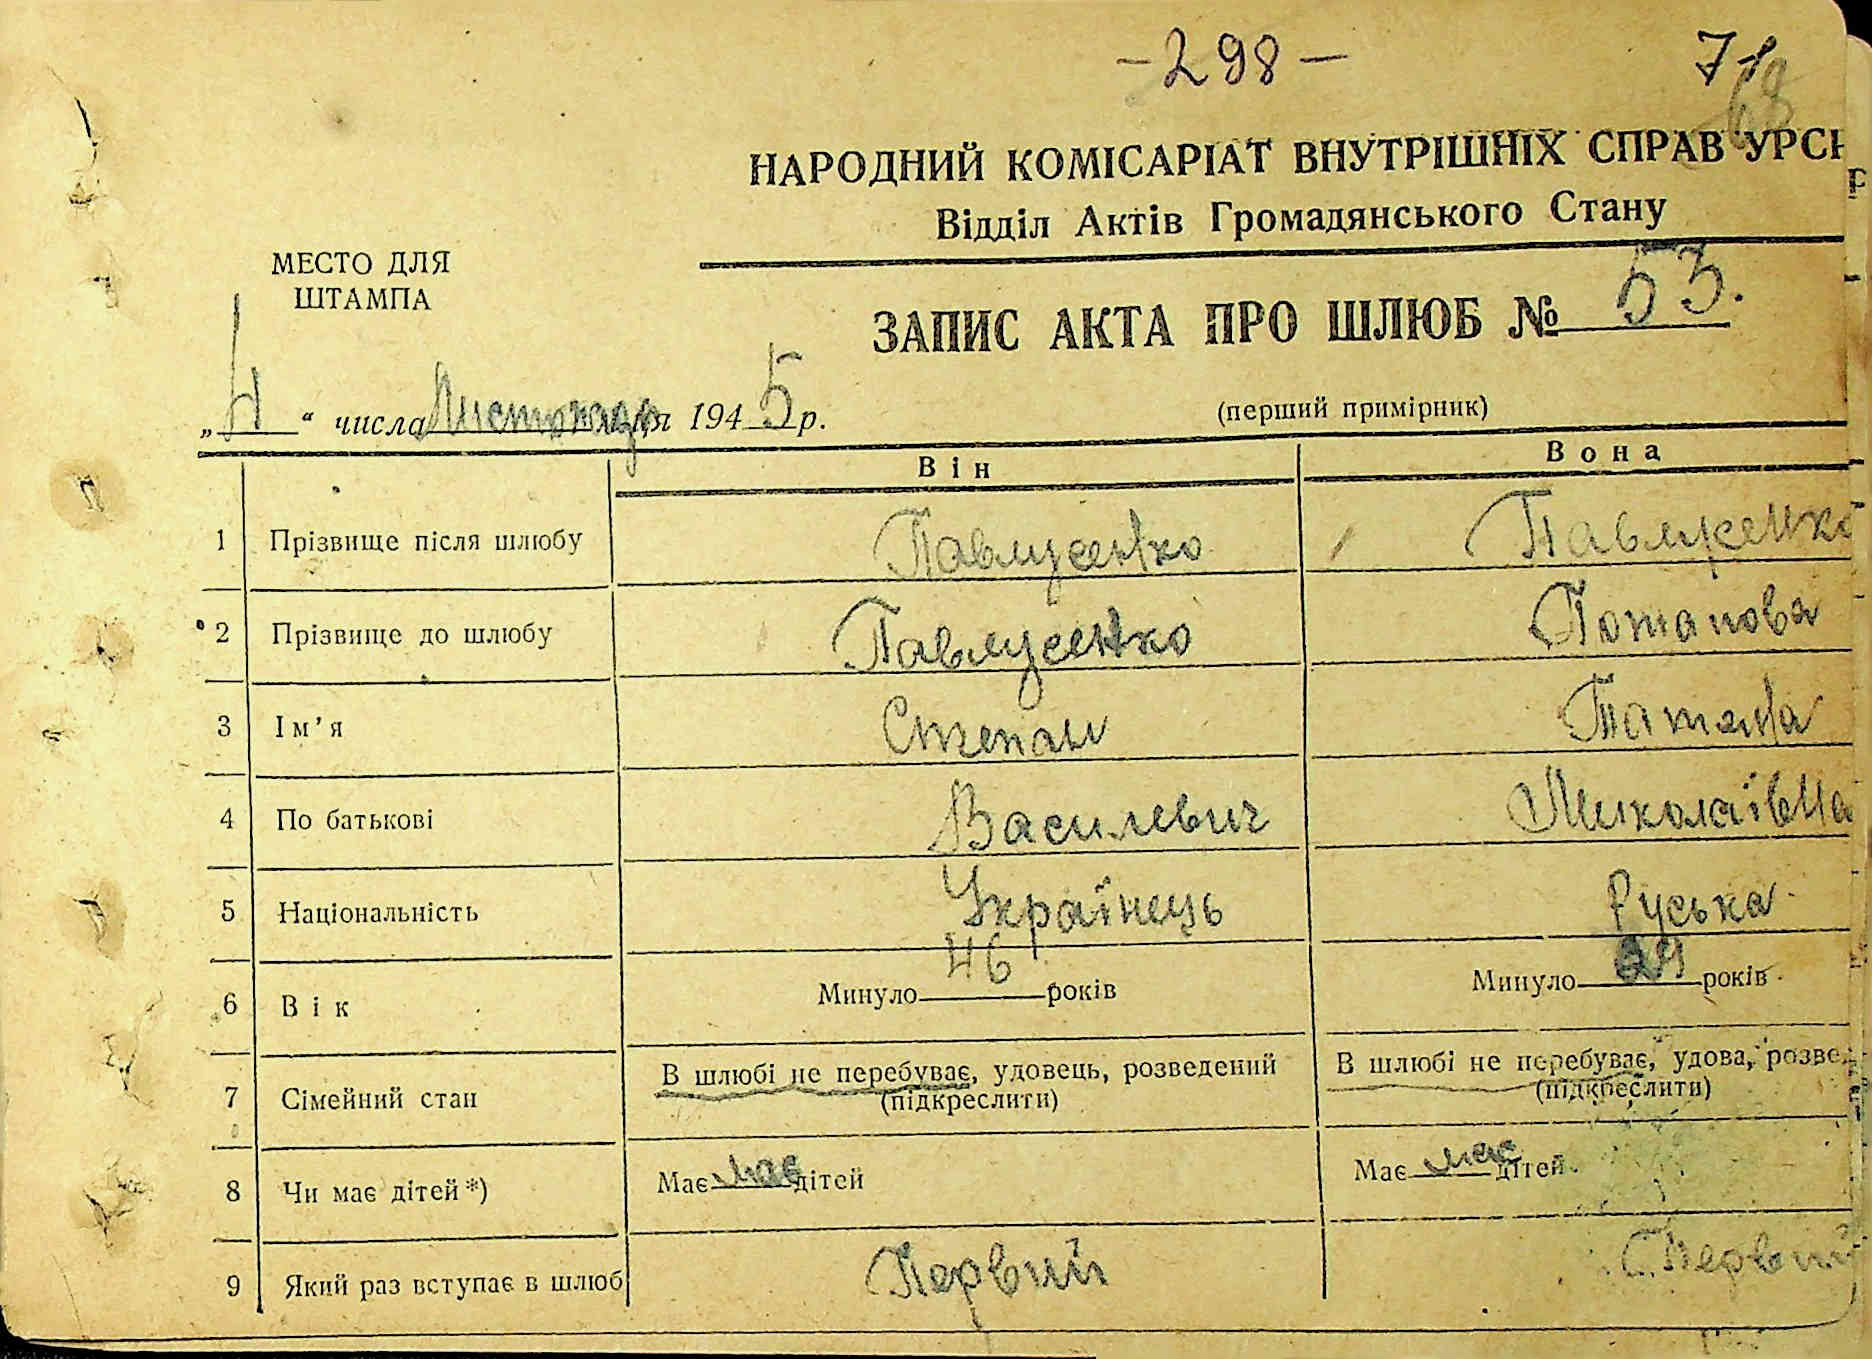 - 298 - 71
68
НАРОДНИЙ КОМІСАРІАТ ВНУТРІШНІХ СПРАВ УРСР
Відділ Актів Громадянського Стану
МЕСТО ДЛЯ
ШТАМПА
ЗАПИС АКТА ПРО ШЛЮБ № 53.
„4“ числа Листопада 1945 р.
(перший примірник)
Він Вона
1 Прізвище після шлюбу Павлусенко Павлусенко
2 Прізвище до шлюбу Павлусенко Потапова
3 Ім'я Степан Татяна
4 По батькові Василевич Миколаївна
5 Національність Українець Руська
6 Вік Минуло 46 років Минуло 29 років
7 Сімейний стан В шлюбі не перебуває, удовець, розведений В шлюбі не перебуває, удова, розве
(підкреслити) (підкреслити)
8 Чи має дітей*) Має має дітей Має має дітей
9 Який раз вступає в шлюб Первий Первий